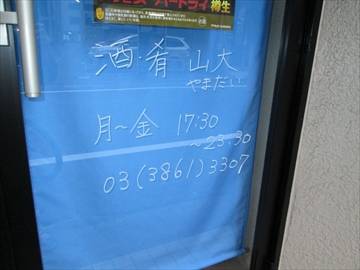 ドライ 樽生
酒肴 山大
やまだい
月～金 17:30
～23:30
03(3861)3307